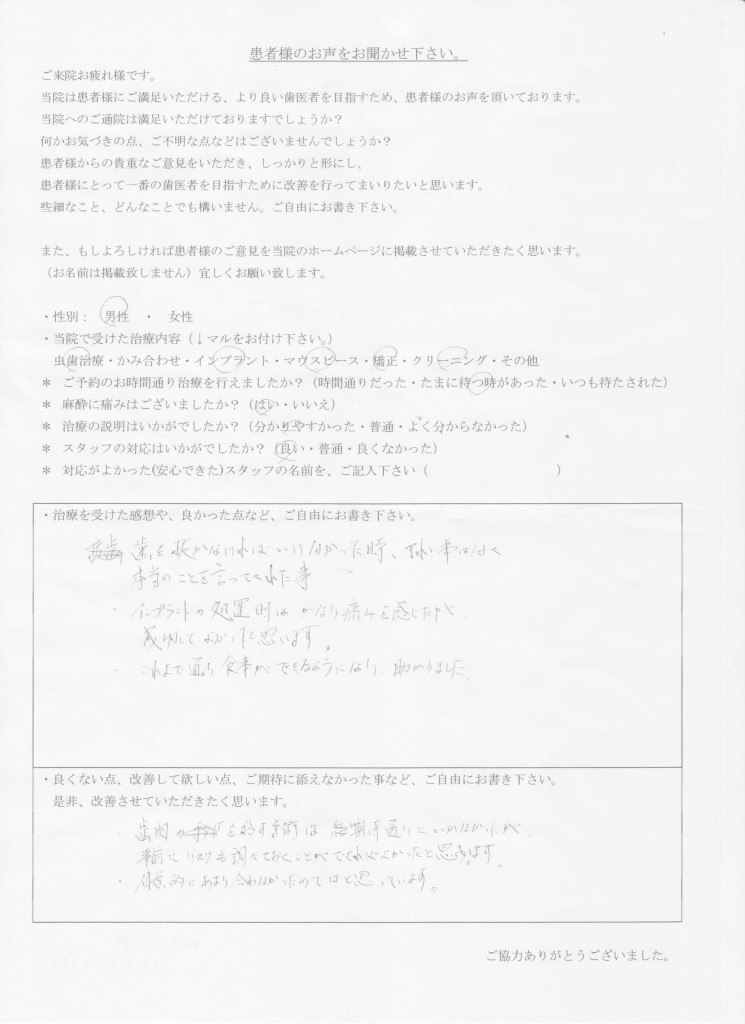 患者様のお声をお聞かせ下さい。
ご来院お疲れ様です。
当院は患者様にご満足いただける、より良い歯医者を目指すため、患者様のお声を頂いております。
当院へのご通院は満足いただけておりますでしょうか？
何かお気づきの点、ご不明な点などはございませんでしょうか？
患者様からの貴重なご意見をいただき、しっかりと形にし、
患者様にとって一番の歯医者を目指すために改善を行ってまいりたいと思います。
些細なこと、どんなことでも構いません。ご自由にお書き下さい。
また、もしよろしければ患者様のご意見を当院のホームページに掲載させていただきたく思います。
（お名前は掲載致しません）宜しくお願い致します。
・性別： 男性 ・ 女性
・当院で受けた治療内容（↓マルをお付け下さい。）
虫歯治療・かみ合わせ・インプラント・マウスピース・矯正・クリーニング・その他
＊ ご予約のお時間通り治療を行えましたか？（時間通りだった・たまに待つ時があった・いつも待たされた）
＊ 麻酔に痛みはございましたか？（はい・いいえ）
＊ 治療の説明はいかがでしたか？（分かりやすかった・普通・よく分からなかった）
＊ スタッフの対応はいかがでしたか？（良い・普通・良くなかった）
＊ 対応がよかった(安心できた)スタッフの名前を、ご記入下さい（ ）
・治療を受けた感想や、良かった点など、ご自由にお書き下さい。
歯を抜かなければいけなかった時、
本当のことを言ってくれた事
・インプラントの処置時はかなり痛みを感じたが、
成功してよかったと思います。
・これまで通り食事ができるようになり、助かりました。
・良くない点、改善して欲しい点、ご期待に添えなかった事など、ご自由にお書き下さい。
是非、改善させていただきたく思います。
・歯肉の を移す手術は期待通りにいかなかったが、
事前にリスクを調べておくことができればよかったと思います。
・体質的にあまり合わなかったのではと思っています。
ご協力ありがとうございました。